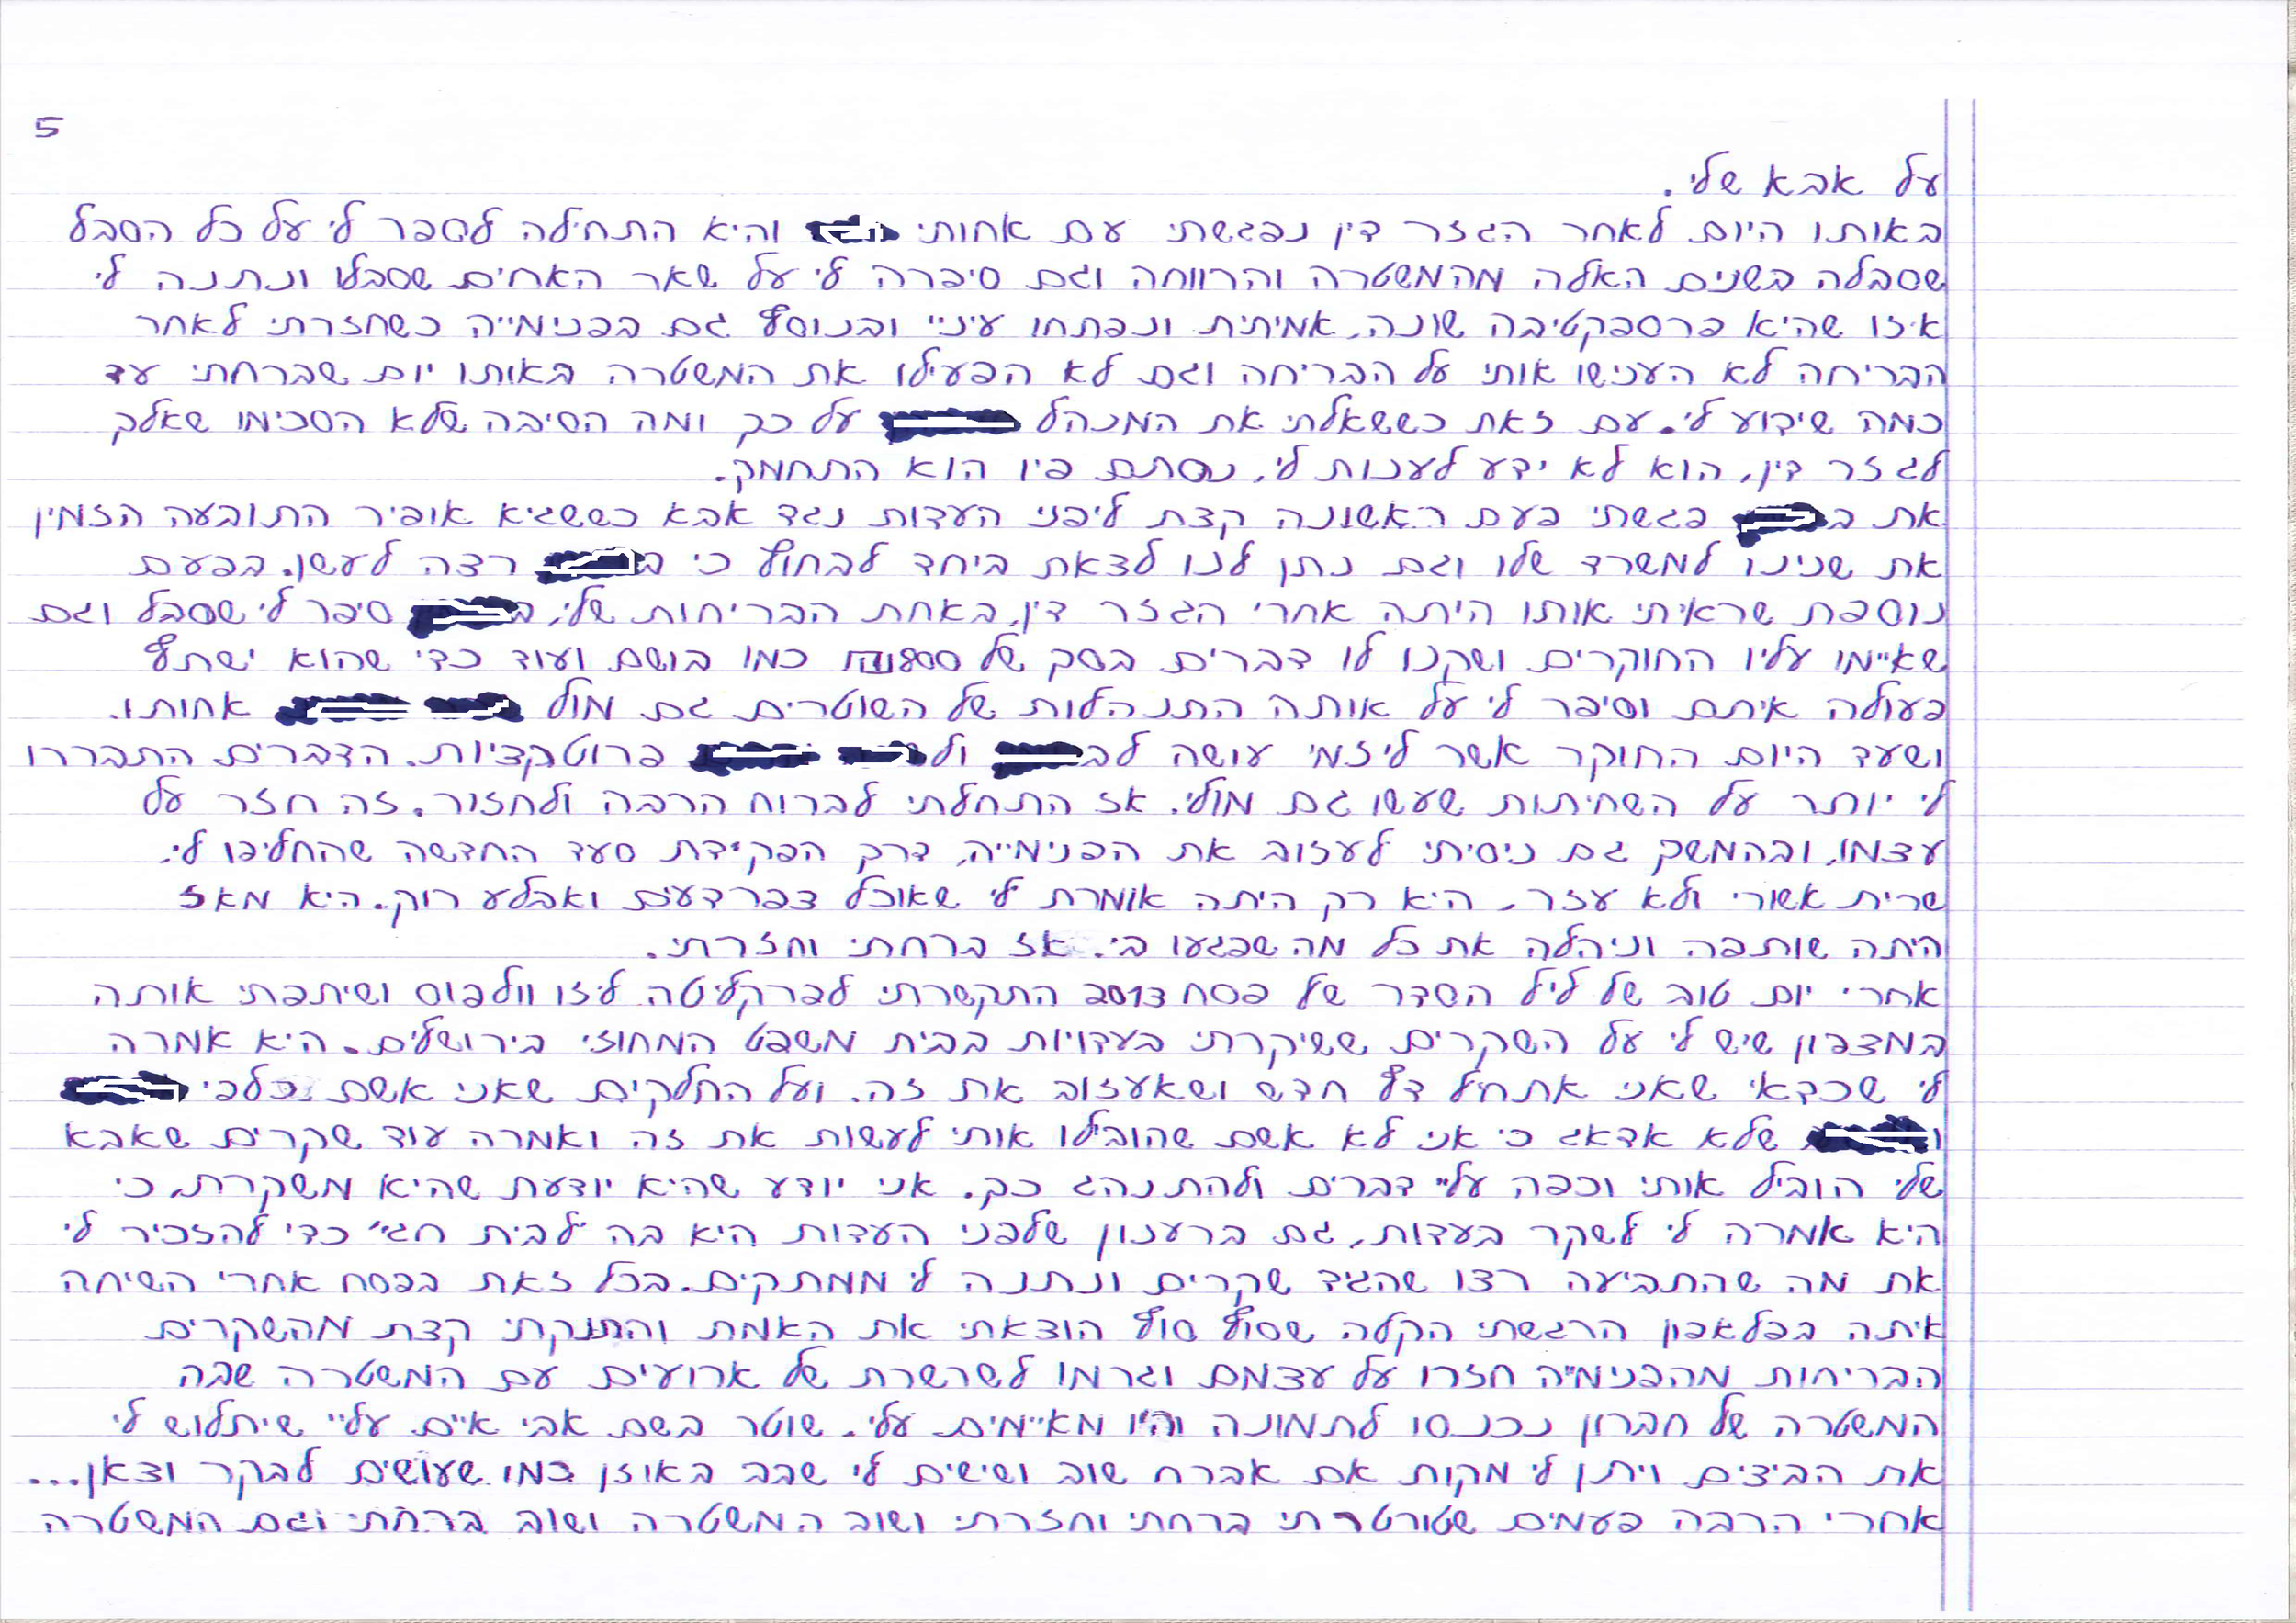 5
על אבא שלי.
באותו היום לאחר הגזר דין נפגשתי עם אחותי והיא התחילה לספר לי על כל הסבל
שסבלה בשנים האלה מהמשטרה והרווחה וגם סיפרה לי על שאר האחים שסבלו ונתנה לי
איזו שהיא פרספקטיבה שונה, אמיתית ונפתחו עיניי ובנוסף גם בפנימייה כשחזרתי לאחר
הבריחה לא הענישו אותי על הבריחה וגם לא הפעילו את המשטרה באותו יום שברחתי עד
כמה שידוע לי. עם זאת כששאלתי את המנהל על כך ומה הסיבה שלא הסכימו שאלך
לגזר דין, הוא לא ידע לענות לי, נסתם פיו הוא התחמק.
את ב פגשתי פעם ראשונה קצת ליפני העדות נגד אבא כששגיא אופיר התובעה הזמין
את שנינו למשרד שלו וגם נתן לנו לצאת ביחד לבחוץ כי ב רצה לעשן. בפעם
נוספת שראיתי אותו היתה אחרי הגזר דין, באחת הבריחות שלי, ב סיפר לי שסבל וגם
שאיימו עליו החוקרים ושקנו לו דברים בסך של 800₪ כמו בושם ועוד כדי שהוא ישתף
פעולה איתם וסיפר לי על אותה התנהלות של השוטרים גם מול אחותו.
ושעד היום החוקר אשר ליזמי עושה לב ול פרוטקציות. הדברים התבררו
לי יותר על השחיתות שעשו גם מולי. אז התחלתי לברוח הרבה ולחזור. זה חזר על
עצמו, ובהמשך גם ניסיתי לעזוב את הפנימייה, דרך הפקידת סעד החדשה שהחליפו לי.
שרית אשורי ולא עזר, היא רק היתה אומרת לי שאוכל צפרדעים ואבלע רוק. היא מאז
היתה שותפה וניהלה את כל מה שפגעו בי. אז ברחתי וחזרתי.
אחרי יום טוב של ליל הסדר של פסח 2013 התקשרתי לפרקליטה ליזו וולפוס ושיתפתי אותה
במצפון שיש לי על השקרים ששיקרתי בעדויות בבית משפט המחוזי בירושלים. היא אמרה
לי שכדאי שאני אתחיל דף חדש ושאעזוב את זה. ועל החלקים שאני אשם כלפי
ו שלא אדאג כי אני לא אשם שהובילו אותי לעשות את זה ואמרה עוד שקרים שאבא
שלי הוביל אותי וכפה עליי דברים ולהתנהג כך. אני יודע שהיא יודעת שהיא משקרת, כי
היא אמרה לי לשקר בעדות, גם ברענון שלפני העדות היא בה "לבית חגי" כדי להזכיר לי
את מה שהתביעה רצו שהגיד שקרים ונתנה לי ממתקים. בכל זאת בפסח אחרי השיחה
איתה בפלאפון הרגשתי הקלה שסוף סוף הוצאתי את האמת והתנקתי קצת מהשקרים
הבריחות מהפנימייה חזרו על עצמם וגרמו לשרשרת של ארועים עם המשטרה שבה
המשטרה של חברון נכנסו לתמונה והיו מאיימים עלי. שוטר בשם אבי איים עליי שיתלוש לי
את הביצים ויתן לי מקות אם אברח שוב ושישים לי שבב באוזן כמו שעושים לבקר וצאן...
אחרי הרבה פעמים שטורטרתי ברחתי וחזרתי ושוב המשטרה ושוב ברחתי וגם המשטרה